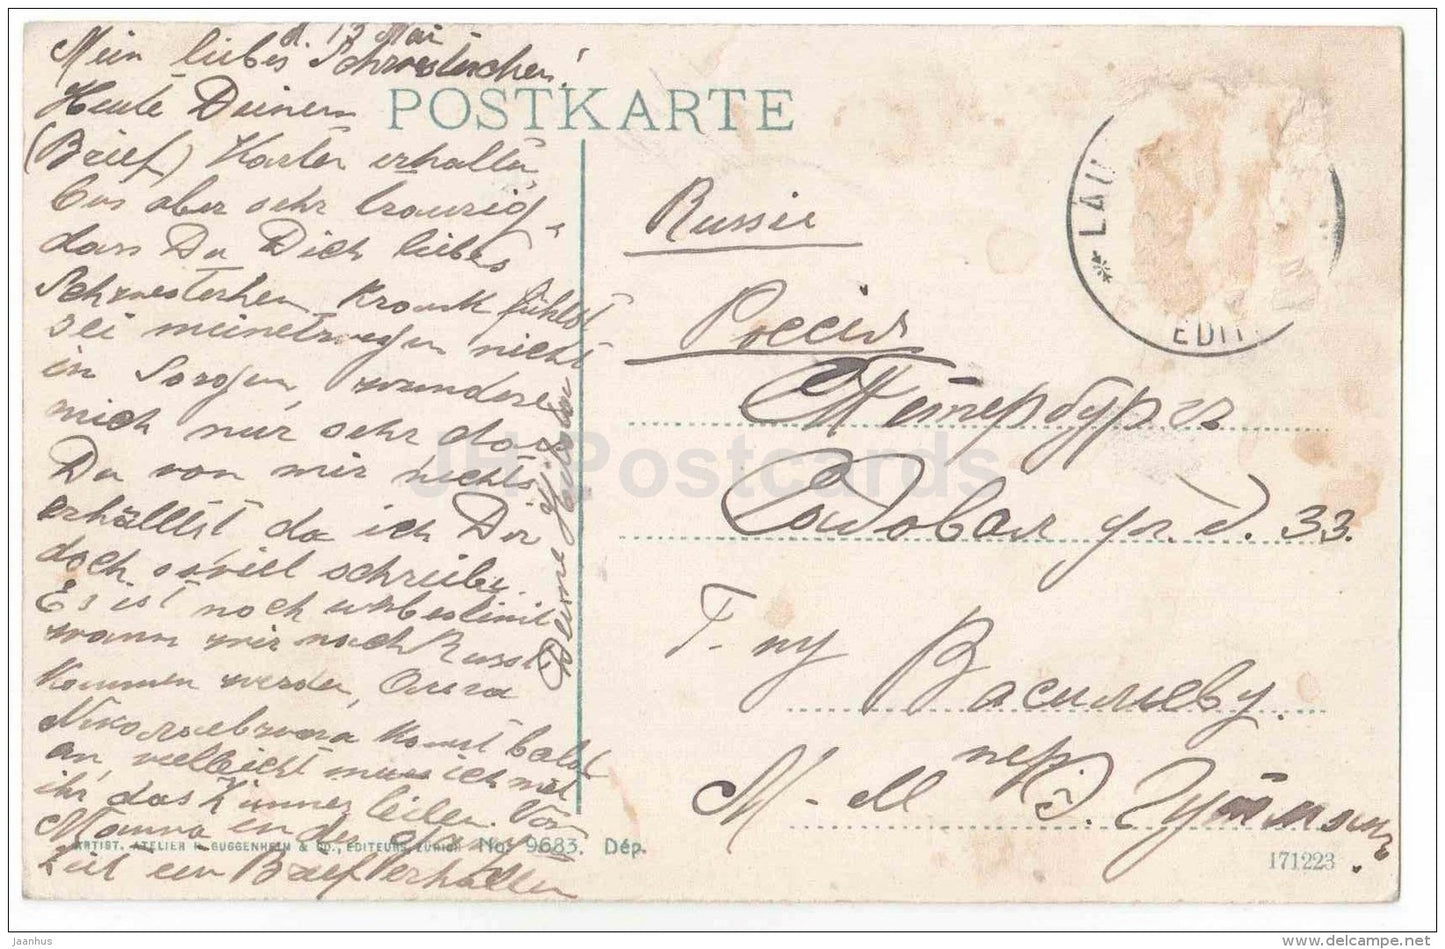 d. 13 Mai
Mein liebes Schwesterchen!
Heute Deinen
(Brief) Karten erhalten,
bin aber sehr traurig,
dass Du Dich liebes
Schwesterchen krank fühlst
sei meinetwegen nicht
in Sorgen, wundere
mich nur sehr das
Du von mir nichts
erhälltst da ich Dir
doch soviel schreibe.
Es ist noch unbestimt
wann wir nach Russl
kommen werden,
kommt bald
an vielleicht muss ich mit
ihr das Zimmer teilen. Von
Mamma in der ganzen
Zeit ein Brief erhalten
Deine
POSTKARTE
Russie
Россия
С Петербургъ
Садовая ул. д. 33.
Г-ну
Василиеву.
пер.
М-ll Э.
LAU
EDIT
ARTIST. ATELIER H. GUGGENHEIM & CO., EDITEURS, ZÜRICH No. 9683. Dép.
171223
JH Postcards
Jaanhus
www.delcampe.net